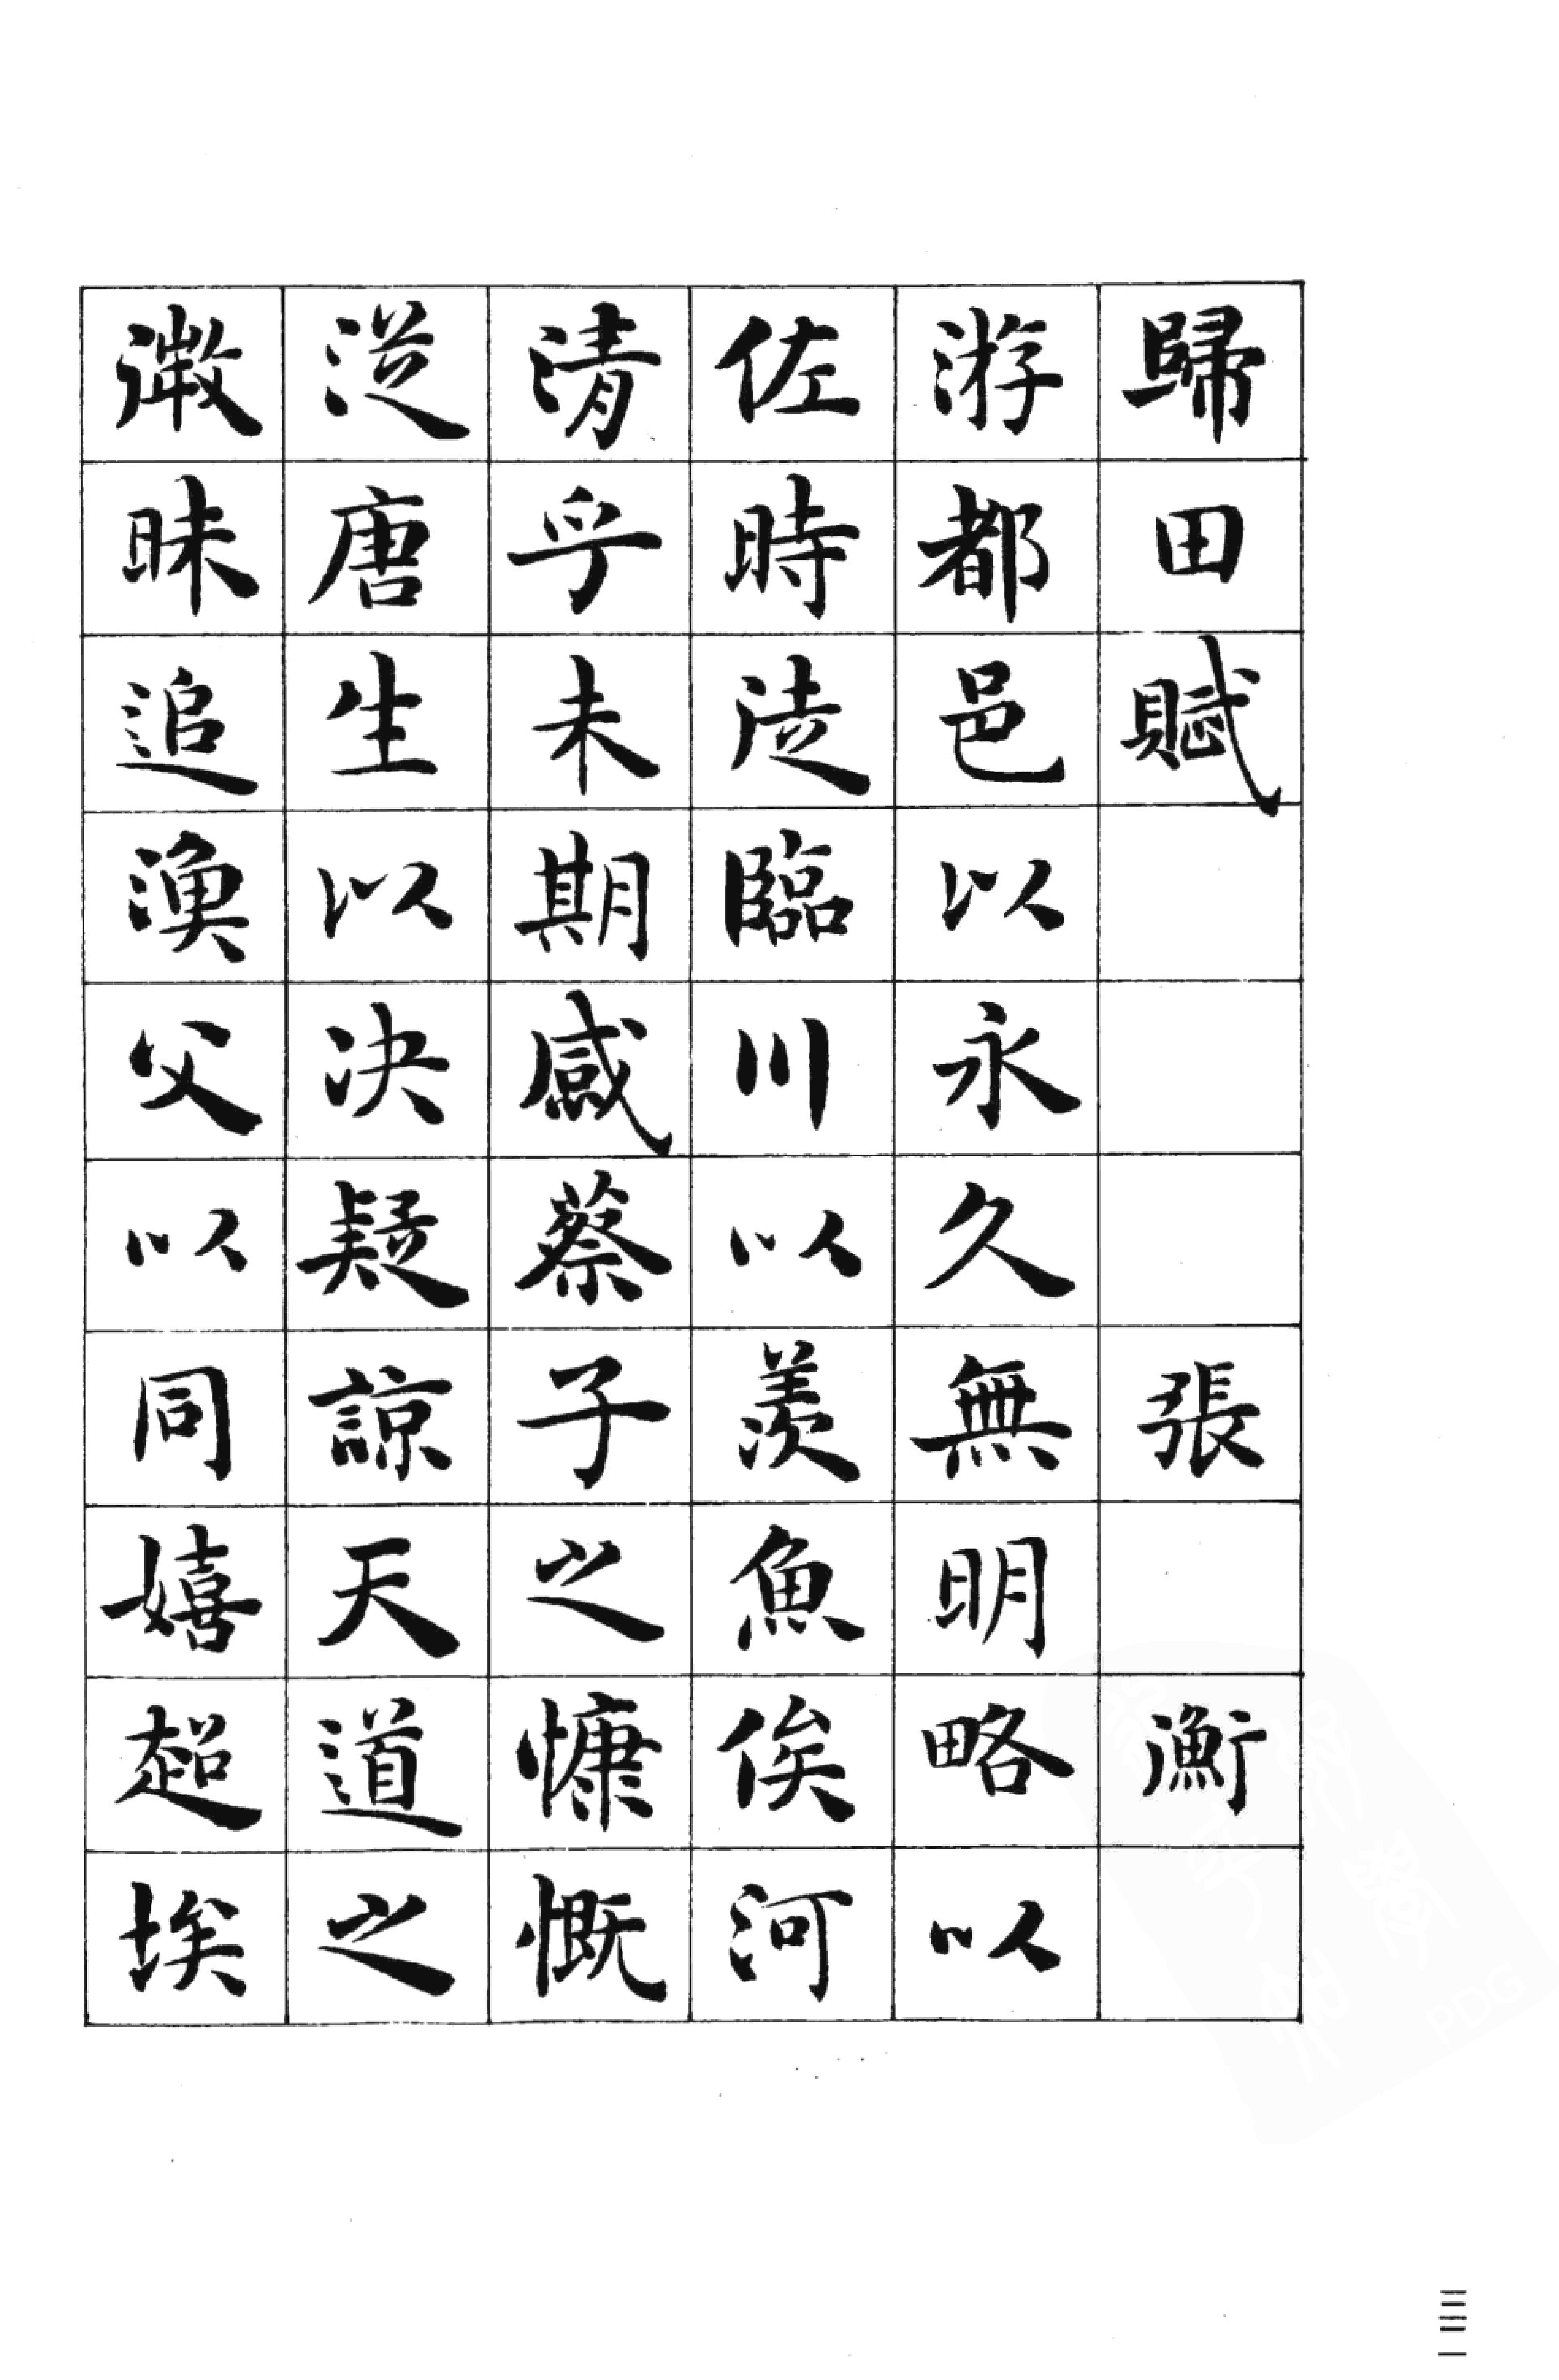 歸田賦 張 衡
游都邑以永久無明略以
佐時徒臨川以羨魚俟河
清乎未期感蔡子之慷慨
從唐生以決疑諒天道之
微昧追漁父以同嬉超埃